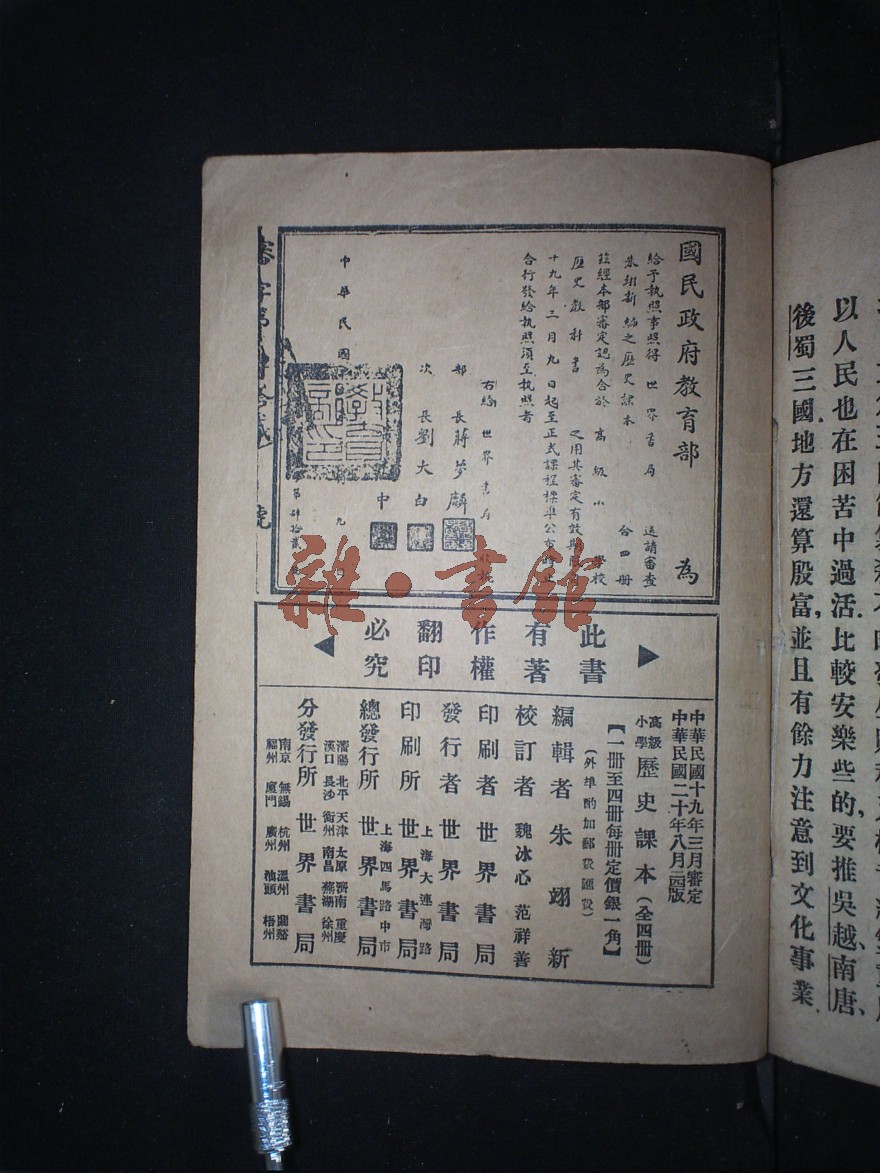 國民政府教育部　為
給予執照事照得　世界書局　送請審查
朱翊新編之歷史課本　合四冊
茲經本部審定認為合於　高級小學校
歷史教科書　之用其審定有效期間
十九年三月九日起至正式課程標準公布
合行發給執照須至執照者
右給　世界書局
部長蔣夢麟
次長劉大白
中華民國
九
中
教育部印
審字第
號
此書
有著
作權
翻印
必究
中華民國十九年三月審定
中華民國二十年八月二四版
高級小學歷史課本（全四冊）
【一冊至四冊每冊定價銀一角】
（外埠酌加郵費匯費）
編輯者　朱翊新
校訂者　魏冰心　范祥善
印刷者　世界書局
發行者　世界書局
上海大連灣路
印刷所　世界書局
上海四馬路中市
總發行所　世界書局
瀋陽　北平　天津　太原　濟南　重慶
漢口　長沙　衡州　南昌　蕪湖　徐州
分發行所　世界書局
南京　無錫　杭州　溫州　蘭谿
福州　廈門　廣州　汕頭　梧州
雜·書館
以人民也在困苦中過活，比較安樂些的，要推吳越、南唐、
後蜀三國地方還算殷富，並且有餘力注意到文化事業。